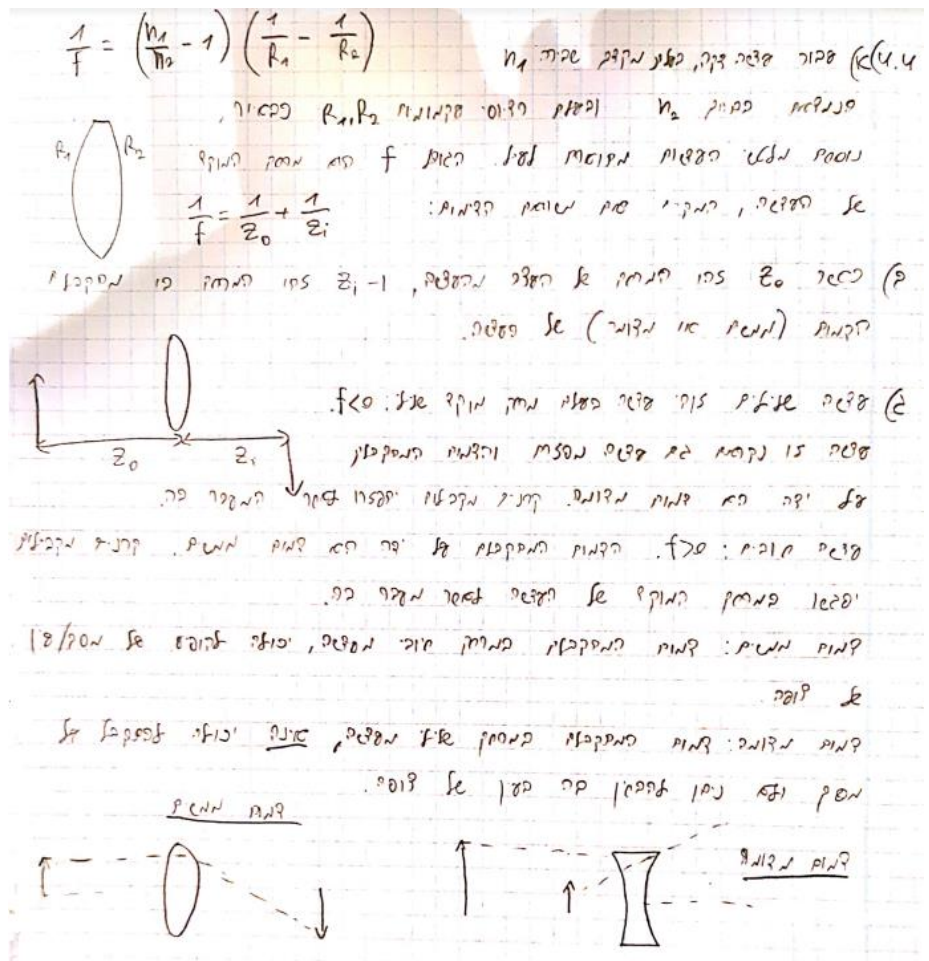 1/f = (n₁/n₂ - 1)(1/R₁ - 1/R₂)
4.4)א) עבור עדשה דקה, בעלת מקדם שבירה n₁
הנמצאת בתווך n₂ ובעלת רדיוסי עקמומיות R₁,R₂ כבאיור,
R₁ R₂
נוסחת מלטשי העדשות מתוארת לעיל f הוא מרחק המוקד
של העדשה, המקיים את משוואת הדימות:
1/f = 1/Z₀ + 1/Zᵢ
ב) כאשר Z₀ זהו המרחק של העצם מהעדשה, ו-Zᵢ זהו המרחק בו מתקבלת
הדמות (ממשית או מדומה) של העדשה.
Z₀ Zᵢ
ג) עדשה שלילית זוהי עדשה בעלת מרחק מוקד שלילי: f<0.
עדשה זו נקראת גם עדשה מפזרת והדמות המתקבלת
על ידה היא דמות מדומה. קרניים מקבילות יתפזרו לאחר המעבר בה.
עדשה חיובית: f>0. הדמות המתקבלת על ידה היא דמות ממשית. קרניים מקבילות
יפגשו במרחק המוקד של העדשה לאחר מעבר בה.
דמות ממשית: דמות המתקבלת במרחק חיובי מעדשה, יכולה להופיע על מסך/עין
של צופה.
דמות מדומה: דמות המתקבלת במרחק שלילי מעדשה, אינה יכולה להתקבל על
מסך ולא ניתן להבחין בה בעין של צופה.
דמות ממשית
דמות מדומה